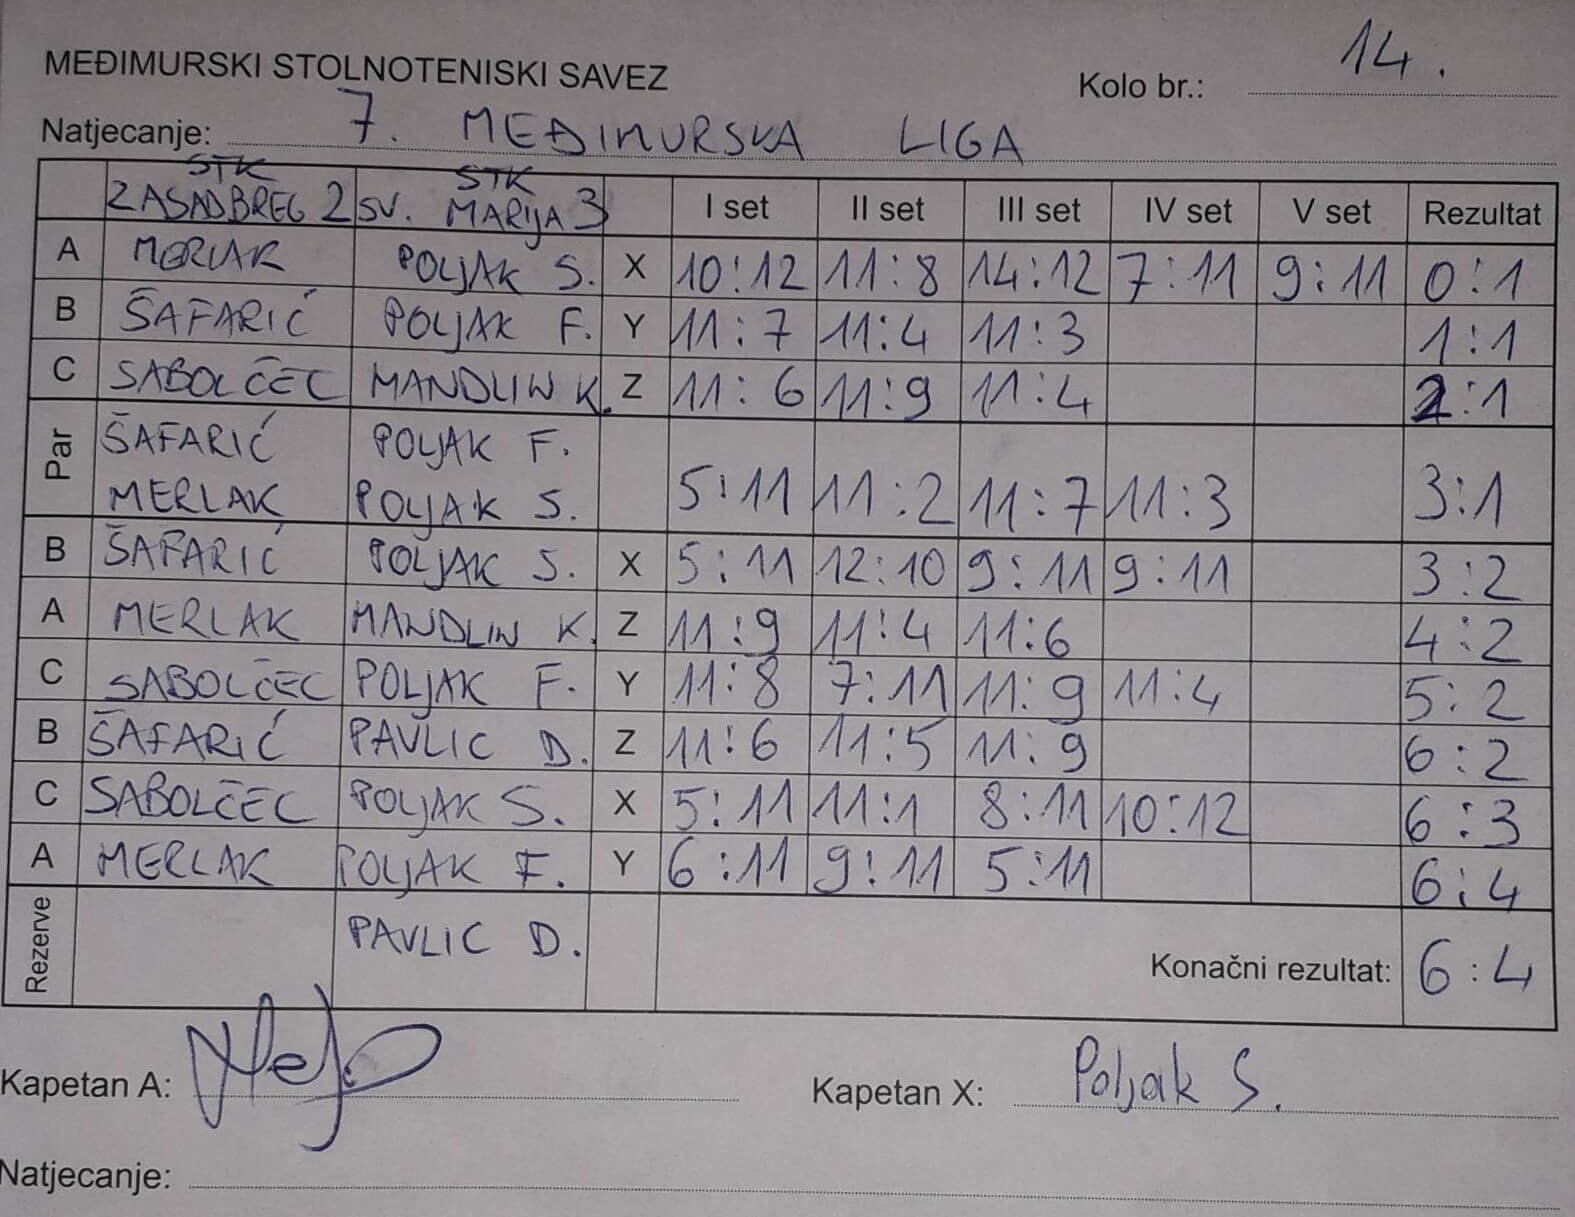 MEĐIMURSKI STOLNOTENISKI SAVEZ Kolo br.: 14.
Natjecanje: 7. MEĐIMURSKA LIGA
STK ZASADBREG 2 STK SV. MARIJA 3 I set II set III set IV set V set Rezultat
A MERLAK POLJAK S. X 10:12 11:8 14:12 7:11 9:11 0:1
B ŠAFARIĆ POLJAK F. Y 11:7 11:4 11:3 1:1
C SABOLČEC MANDLIN K. Z 11:6 11:9 11:4 2:1
Par ŠAFARIĆ POLJAK F.
MERLAK POLJAK S. 5:11 11:2 11:7 11:3 3:1
B ŠAFARIĆ POLJAK S. X 5:11 12:10 9:11 9:11 3:2
A MERLAK MANDLIN K. Z 11:9 11:4 11:6 4:2
C SABOLČEC POLJAK F. Y 11:8 7:11 11:9 11:4 5:2
B ŠAFARIĆ PAVLIC D. Z 11:6 11:5 11:9 6:2
C SABOLČEC POLJAK S. X 5:11 11:1 8:11 10:12 6:3
A MERLAK POLJAK F. Y 6:11 9:11 5:11 6:4
Rezerve PAVLIC D. Konačni rezultat: 6:4
Kapetan A: Kapetan X: Poljak S.
Natjecanje: